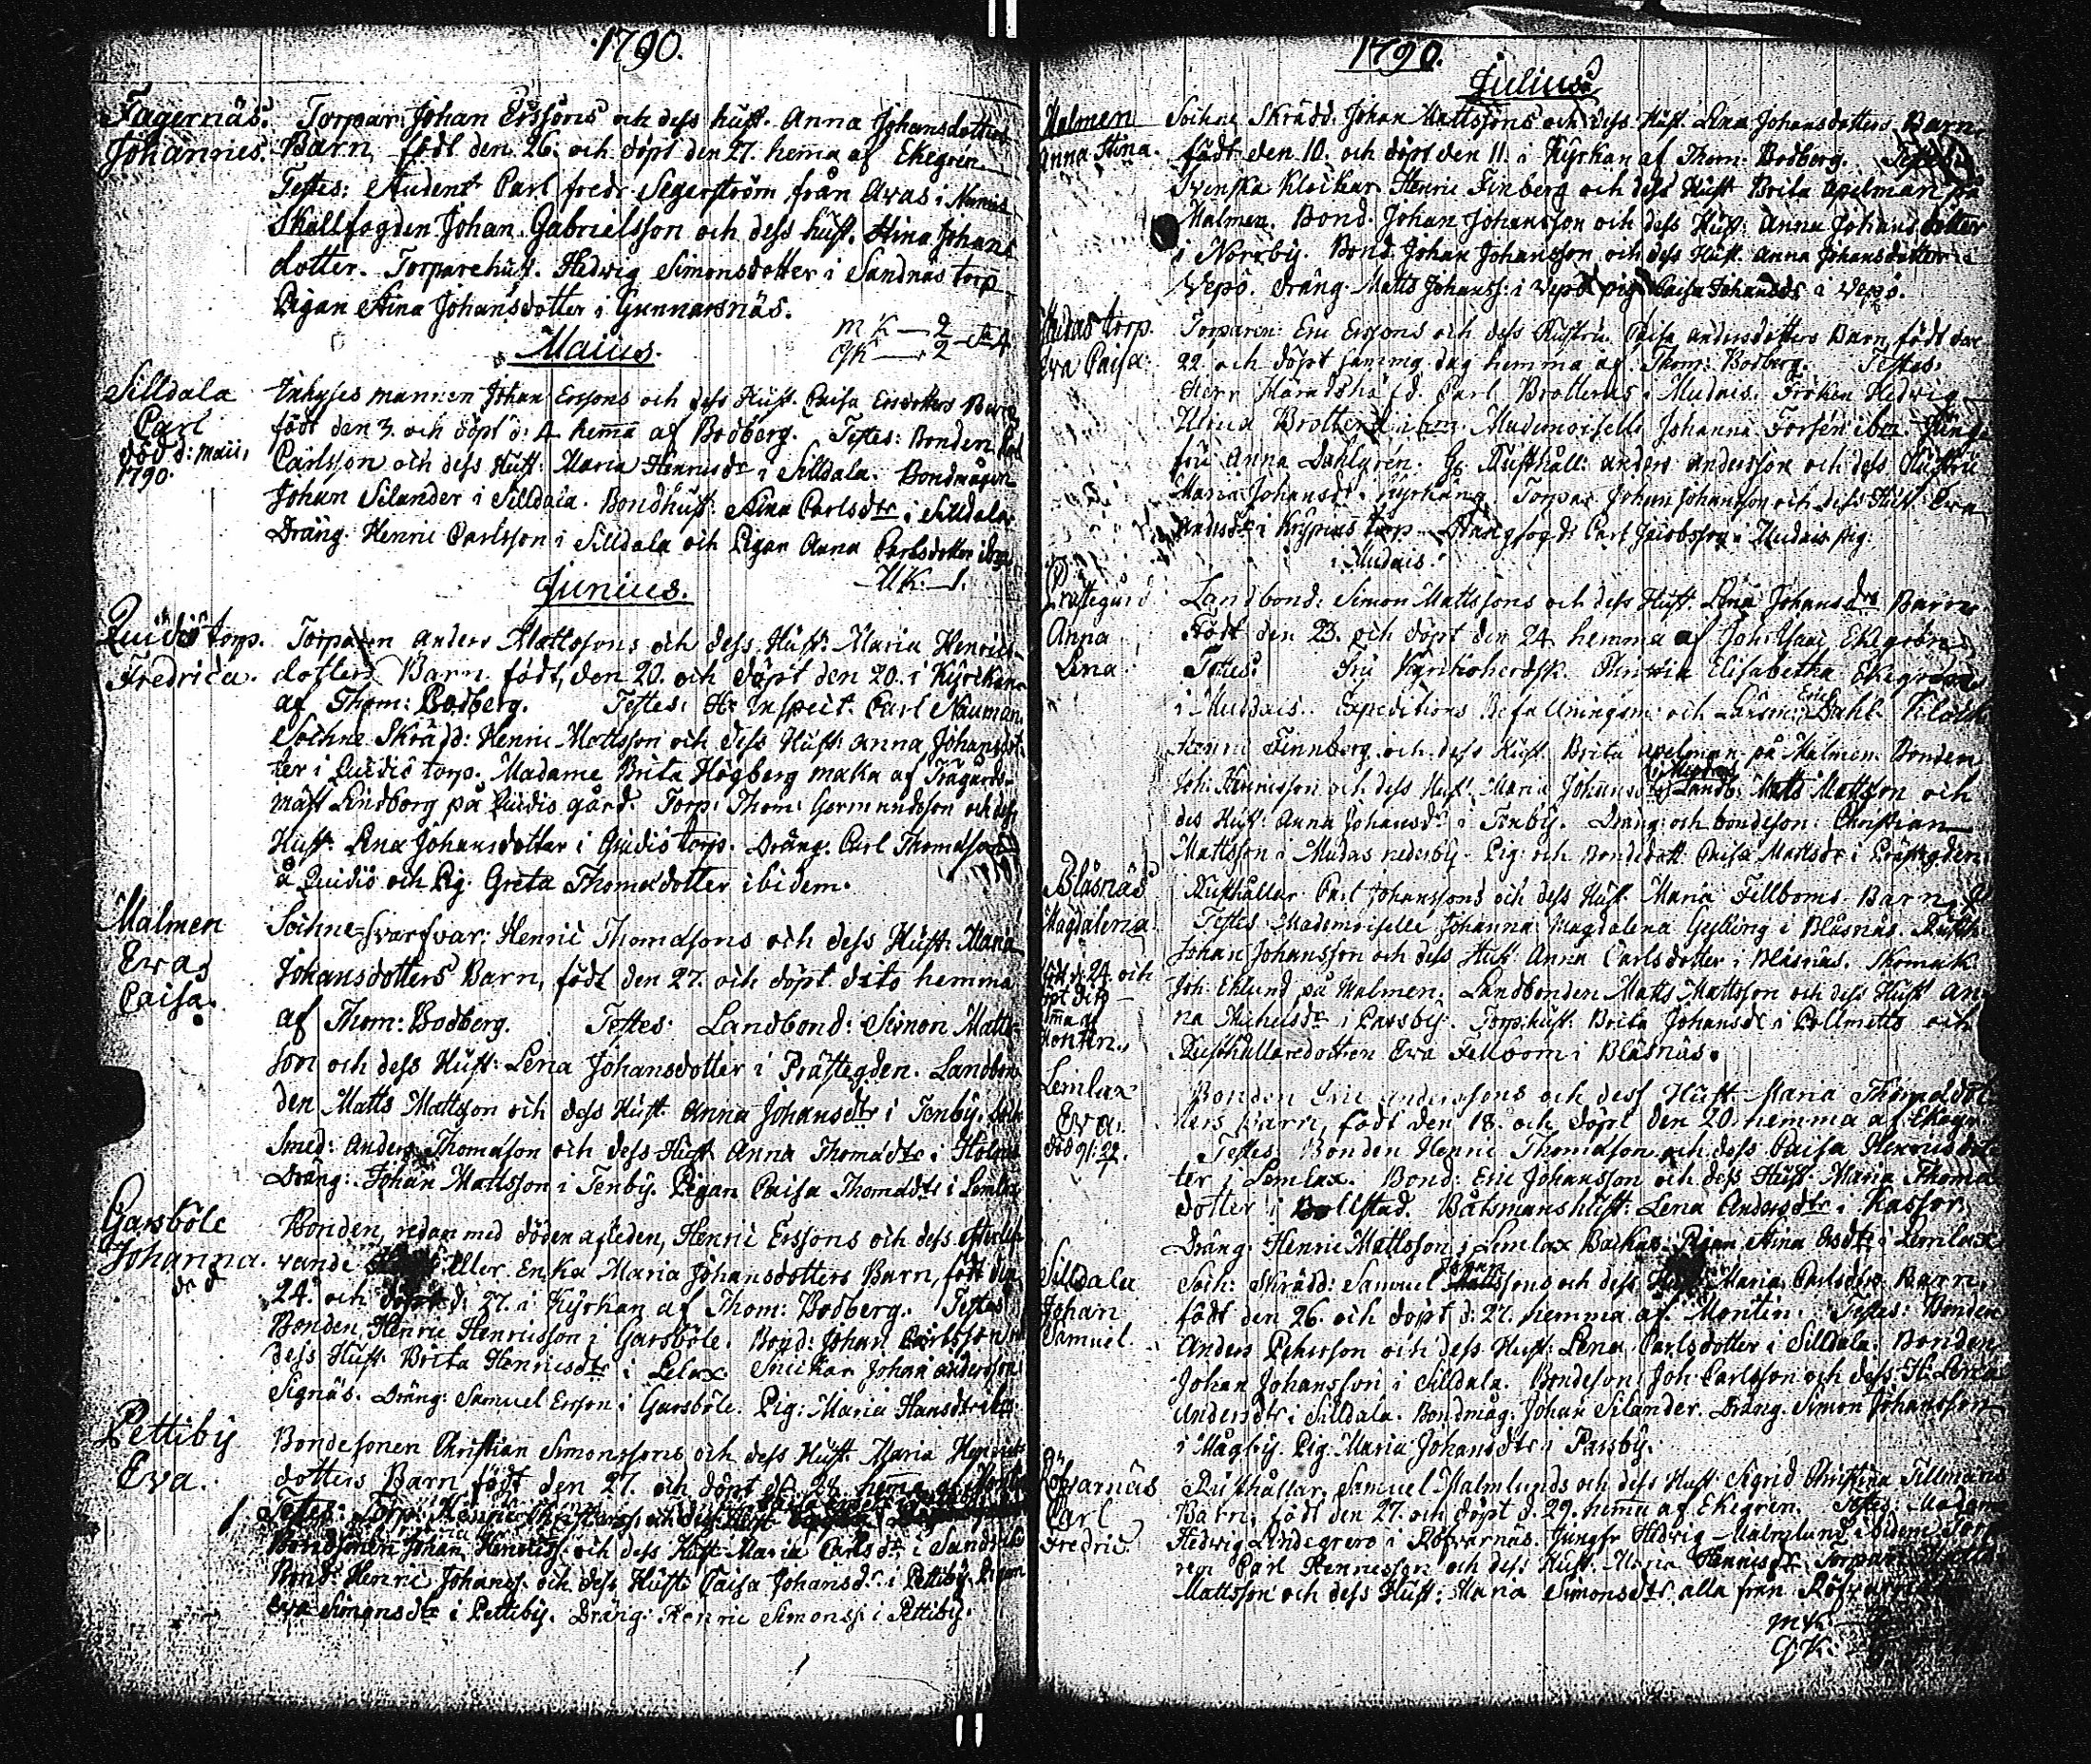 1790.
Fagernäs. Torpar: Johan Erssons och dess hust. Anna Johansdotters
Johannes. Barn, född den 26. och döpt den 27. hema af Ekegren
Testes: Student Carl Fredr Segerström från Awas i
Skallfogden Johan Gabrielsson och dess hust. Stina Johans
dotter. Torparehust. Hedwig Simonsdotter i Sandnäs torp
Pigan Stina Johansdotter i Gunnarsnäs.
m K — 2
qK — 2
Maius.
Silldala Inhyses mannen Johan Erssons och dess Hust. Caisa Ersdotters Barn
Carl född den 3. och döpt d: 4 hema af Bodberg. Testes: Bonden
död d: maii, Carlsson och dess Hust: Maria Henricsdr i Silldala. Bondmågen
1790. Johan Silander i Silldala. Bondhust: Stina Carlsdtr i Silldala
Dräng. Henric Carlsson i Silldala och Pigan Anna Carlsdotter
K. — 1.
Junius.
Quidiö torp. Torparen Anders Mattssons och dess Hust: Maria Henrics
Fredrica. dotters Barn. född, den 20. och döpt den 20. i Kyrckan
af Thom: Bodberg. Testes: Hr Inspect. Carl Nauman.
Sochne Skrädd: Henric Mattsson och dess Hust: Anna Johansdot
ter i Quidiö torp. Madame Brita Högberg maka af Trägårds-
mäst Lindborg på Quidiö gård. Torp: Thom: Germundsson och dess
Hust: Lena Johansdotter i Quidiö torp. Dräng: Carl Thomasson
å Quidiö och Pig. Greta Thomædotter ibidem.
Malmen Sochne-svarfvar: Henric Thomassons och dess Hust: Maria
Eva Johansdotters Barn, född den 27. och döpt dito hemma
Caisa. af Thom: Bodberg. Testes: Landbond: Simon Matts-
son och dess Hust: Lena Johansdotter i Prästegden. Landbon
den Matts Mattsson och dess Hust: Anna Johansdtr i Tenby.
Smed: Anders Thomasson och dess Hust Anna Thomædtr i
Dräng: Johan Mattsson i Tenby. Pigan Caisa Thomædtr i Lemlax
Garsböle Bonden, redan med döden afleden, Henric Erssons och dess efterlef
Johanna. vande eller Enka Maria Johansdotters Barn, född den
död 24. och döpt d: 27. i Kyrkan af Thom: Bodberg. Testes
Bonden, Henric Henricsson i Garsböle. Bond: Johan Carlsson
dess Hust. Brita Henricsdtr i Lelax. Snickar Johan Andersson
Signäs. Dräng: Samuel Ersson i Garsböle. Pig: Maria Hansdtr
Pettiby Bondesonen Christian Simonssons och dess Hust Maria Henrics
Eva. dotters Barn född den 27. och döpt d: 28. hema af
Testes: Torp: Henric och dess Hust
Bondsonen Johan Henricss: och dess Hust Maria Carlsdtr i
Bond: Henric Johanss. och dess Hust: Caisa Johansdr i Pettiby. Pigan
Eva Simonsdtr i Pettiby. Dräng: Henric Simonss: i Pettiby.
1790.
Julius
Malmen Sochne Skrädd. Johan Mattssons och dess Hust. Lena Johansdotters Barn
Anna Stina. född den 10. och döpt den 11. i Kyrkan af Thom: Bodberg.
Svenska Klockar Henric Finberg och dess Hust Brita Apelman på
Malmen. Bond. Johan Johansson och dess Hust: Anna Johansdotter
i Norrby. Bond Johan Johansson och dess Hust. Anna Johansdotter i
Vepö. Dräng. Matts Johanss: i Vepö pig: Caisa Johansdr å Vepö.
torp. Torparen: Eric Erssons och dess Hustru. Caisa Andersdotters Barn, född den
Eva Caisa 22. och döpt samma dag hemma af Thom: Bodberg. Testes.
Herr Häradshöfd. Carl Brotterus i Mudais. Fröken Hedwig
Ulrica ibm. Mademoiselle Johanna Forsén ibm.
fru Anna Dahlgren. Rusthåll: Anders Andersson och dess Hustru
Maria Johansdr i Kyrkäng. Torpar Johan Johansson och dess Hust: Eva
i torp. Drängfogd: Carl Jacobsson i Mudais pig:
i Mudais.
Prästegård Landbond: Simon Mattssons och dess Hust. Lena Johansdrs Barn
Anna född den 23. och döpt den 24 hemma af
Lena Testes: Fru Elisabetha Ekegren
i Muddais. Expeditions Befallningsm: och Länsm: Eric Dahl.
Henric Finnberg och dess Hust. Brita Apelman på Malmen. Bonden
Joh: Henricsson och dess Hust. Maria Johansdtr Landb: Matts Mattsson och
des Hust: Anna Johansdr i Tenby. Dräng: och bondeson: Christian
Mattsson i Mudas nederby. Pig: och Bondedott Caisa Mattsdr i Prästegden.
Blåsnäs Rusthållar Carl Johanssons och dess Hust. Maria Fellboms Barn
Magdalena Testes Mademoiselle Johanna Magdalena Gylling i Blåsnäs.
född d: 24. och Johan Johansson och dess Hust Anna Carlsdotter i Blåsnäs. Skomak
döpt dito Joh: Eklund på Malmen. Landbonden Matts Mattsson och dess Hust An
hema af na Michelsdr i Parsby. Torp.hust: Brita Johansdr i och
Montin. Rusthållaredottren Eva Fellbom i Blåsnäs.
Lemlax Bonden Eric Anderssons och dess Hust: Maria Thomædot-
Eva ters Barn, född den 18. och döpt den 20 hemma af Ekegr
död Testes, Bonden Henric Thomasson och dess Caisa Henricsdot
ter i Lemlax. Bond: Eric Johansson och dess Hust: Maria Thomæ
dotter i Bollstad. Båtsmanshust: Lena Andersdtr i Kassor.
Dräng: Henric Mattsson i Lemlax Backas: Pigan Stina Ersdtr i Lemlax
Silldala Soch: Skrädd: Samuel Johanssons och dess Maria Carlsdotrs Barn.
Johan född den 26. och döpt d: 27. hemma af Montin. Testes: Bonden
Samuel Anders Pehrsson och dess Hust: Lena Carlsdotter i Silldala. Bonden
Johan Johansson i Silldala. Bondeson: Joh: Carlsson och dess H: Lena
Andersdtr i Silldala. Bondmåg: Johan Silander. Dräng. Simon Johansson
i Mågby. Pig: Maria Johansdtr i Parsby.
Röfvarnäs Rusthållar, Samuel Malmlunds och dess Hust: Sigrid Christina Tillmans
Carl Barn, född den 27. och döpt d. 29. hema af Ekegren. Testes: Madame
Fredric Hedwig Lindegren i Röfvarnäs. Jungfr Hedvig Malmlund ibidem Torpa
ren Carl Henricsson och dess Hust. Maria Henricsdr. Torparen
Mattsson och dess Hust: Maria Simonsdtr alla från
m K
q K: